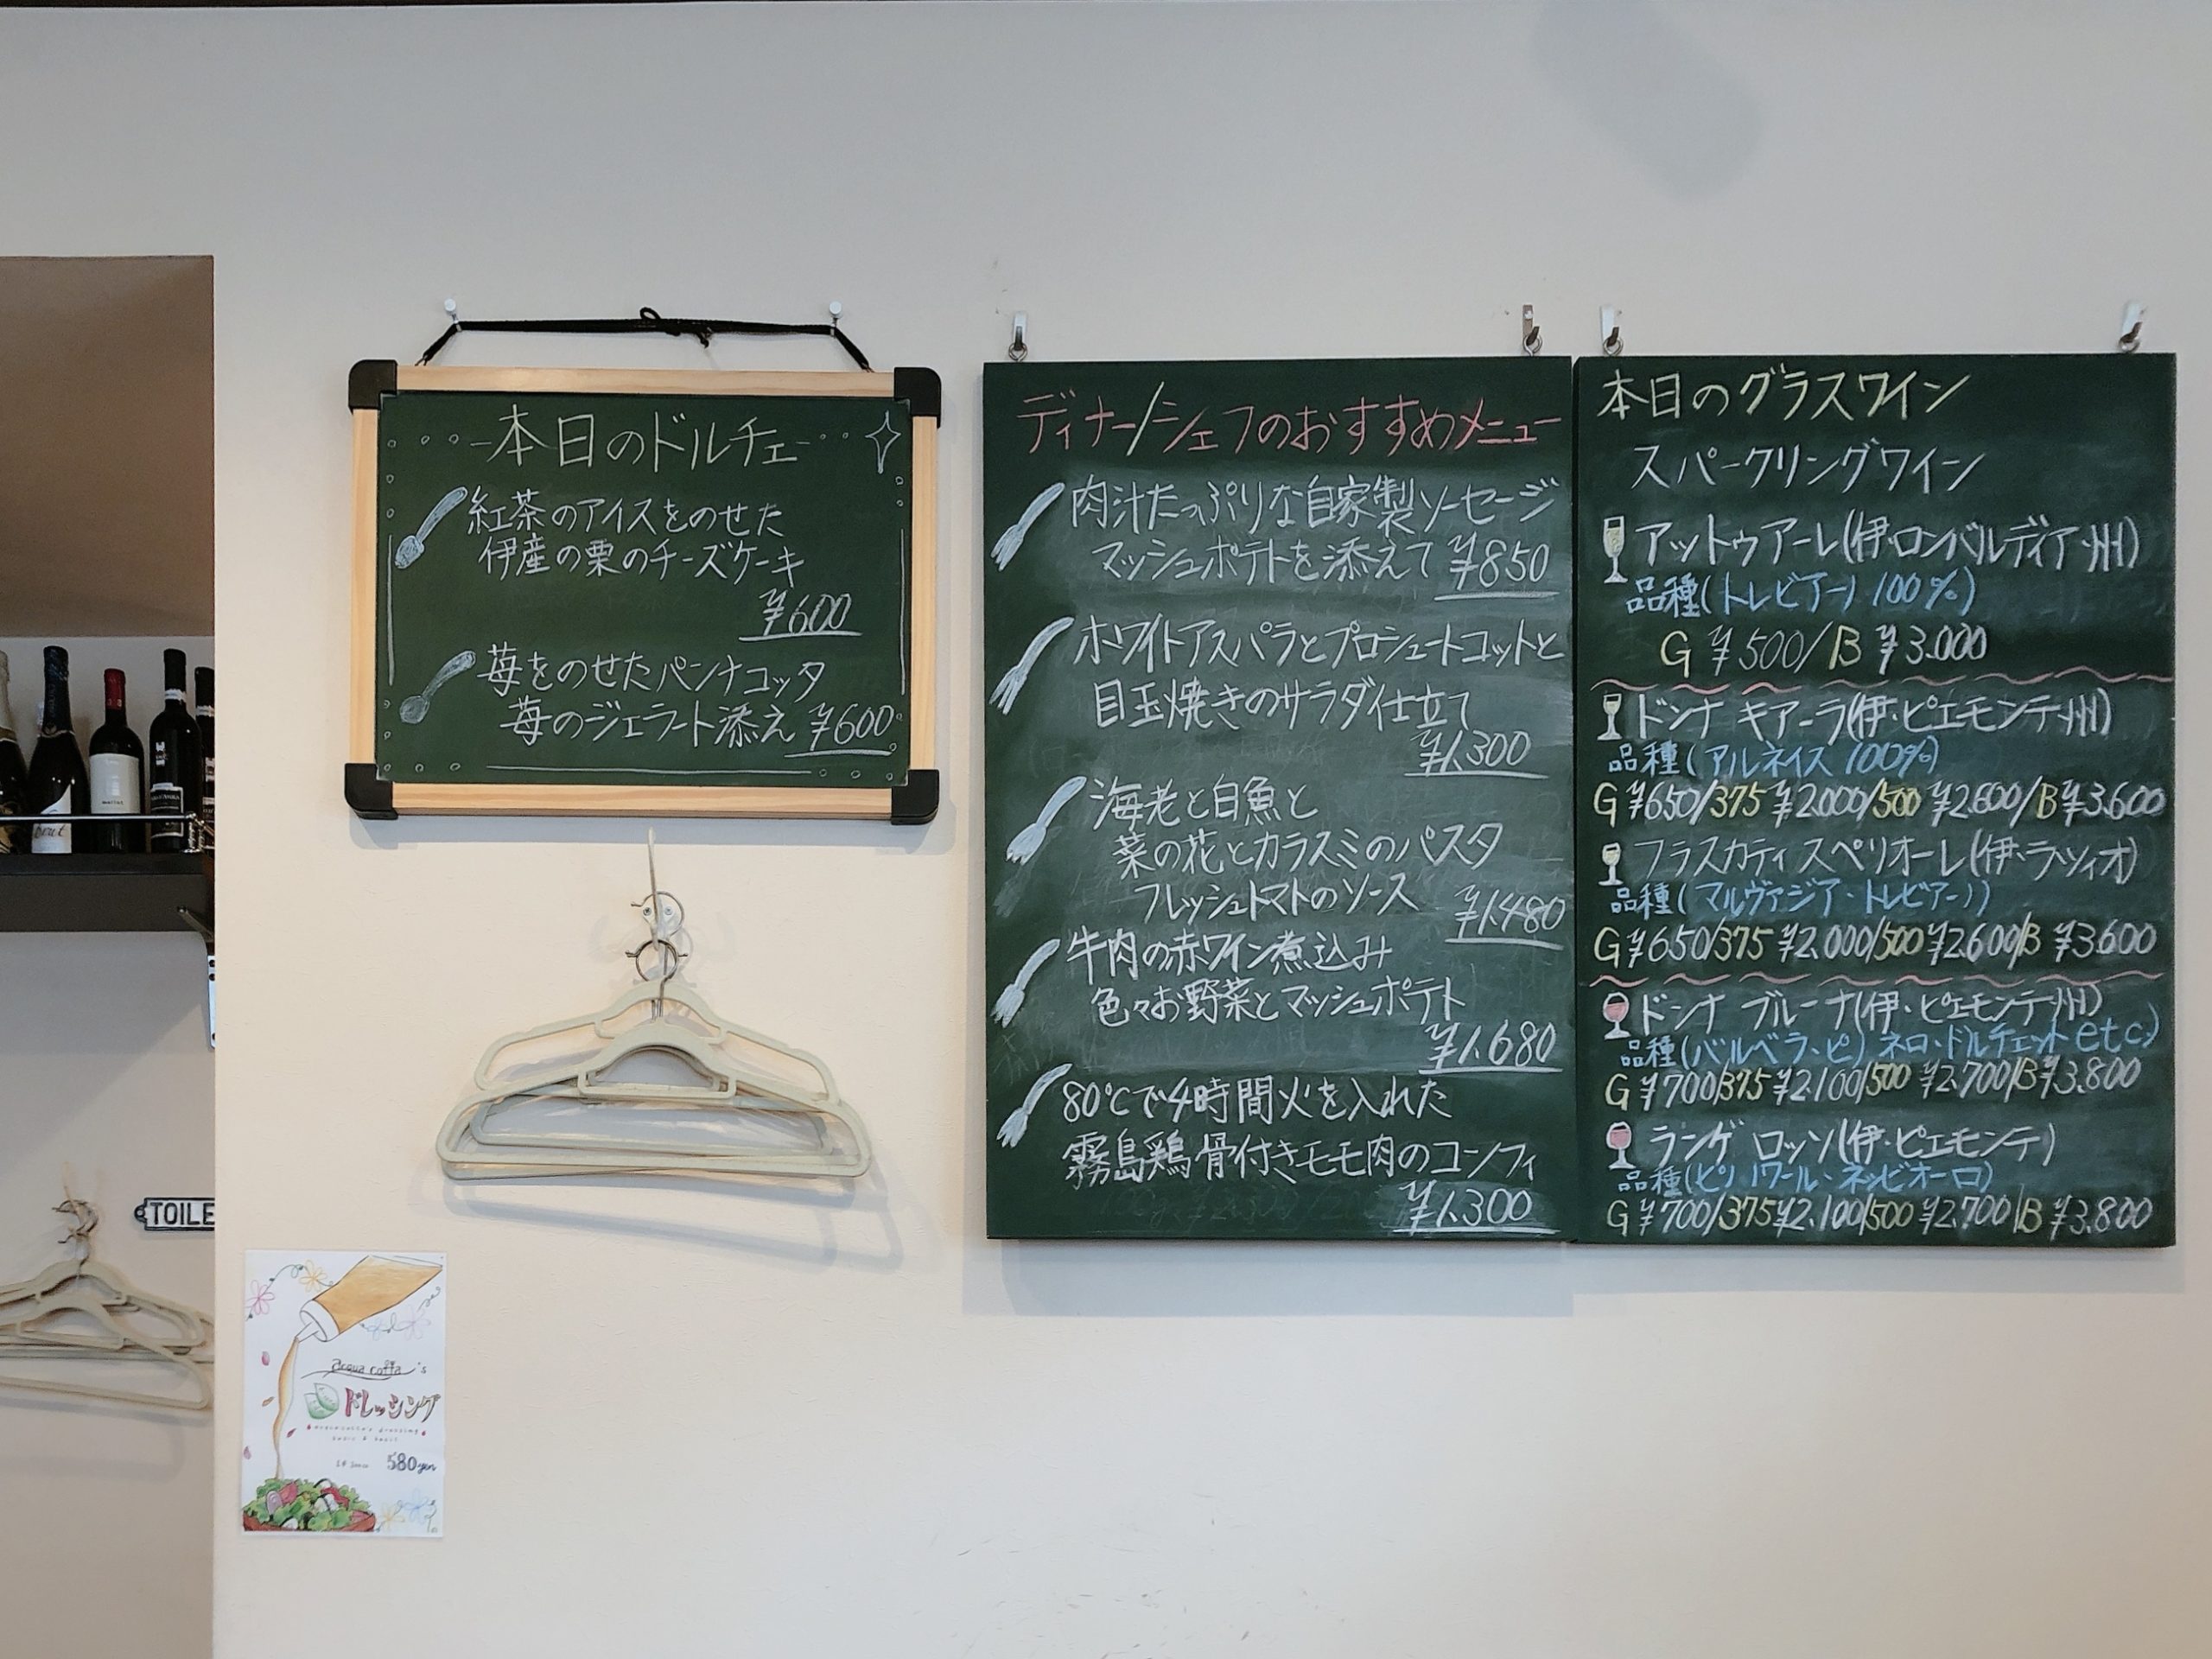 本日のドルチェ
紅茶のアイスをのせた
伊産の栗のチーズケーキ
¥600
苺をのせたパンナコッタ
苺のジェラート添え ¥600
ディナー/シェフのおすすめメニュー
肉汁たっぷりな自家製ソーセージ
マッシュポテトを添えて ¥850
ホワイトアスパラとプロシュートコットと
目玉焼きのサラダ仕立て
¥1.300
海老と白魚と
菜の花とカラスミのパスタ
フレッシュトマトのソース ¥1.480
牛肉の赤ワイン煮込み
色々お野菜とマッシュポテト
¥1.680
80℃で4時間火を入れた
霧島鶏骨付きモモ肉のコンフィ
¥1.300
本日のグラスワイン
スパークリングワイン
アットゥアーレ(伊・ロンバルディア州)
品種(トレビアーノ 100%)
G ¥500/B ¥3.000
ドンナ キアーラ(伊・ピエモンテ州)
品種(アルネイス 100%)
G ¥650/375 ¥2.000/500 ¥2.600/B ¥3.600
フラスカティ スペリオーレ(伊・ラツィオ)
品種(マルヴァジア・トレビアーノ)
G ¥650/375 ¥2.000/500 ¥2.600/B ¥3.600
ドンナ ブルーナ(伊・ピエモンテ州)
品種(バルベラ・ピノネロ・ドルチェット etc)
G ¥700/375 ¥2.100/500 ¥2.700/B ¥3.800
ランゲ ロッソ(伊・ピエモンテ)
品種(ピノノワール・ネッビオーロ)
G ¥700/375 ¥2.100/500 ¥2.700/B ¥3.800
TOILE
acqua cotta's
ドレッシング
580yen
brut
merlot